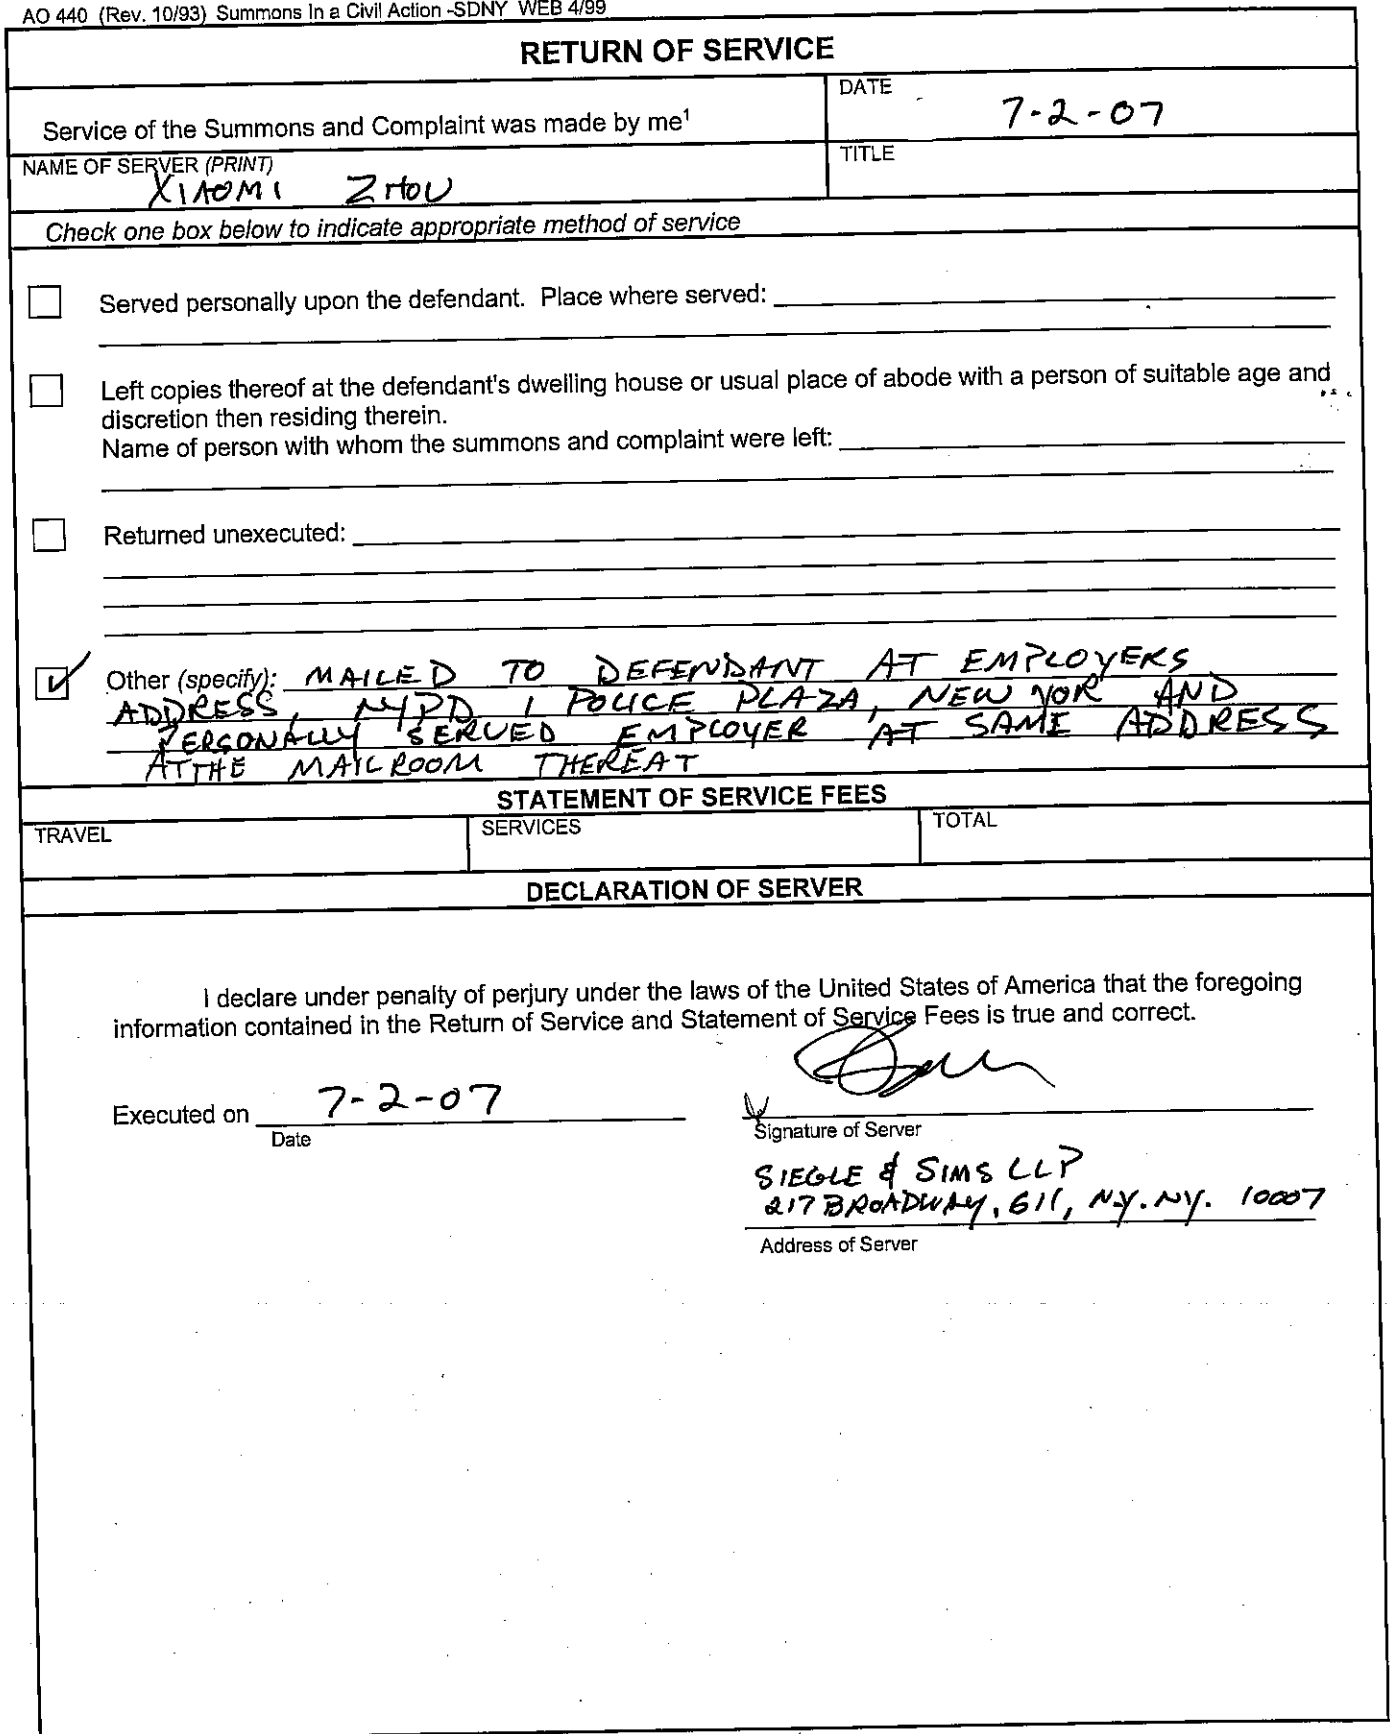 AO 440 (Rev. 10/93) Summons In a Civil Action -SDNY WEB 4/99
RETURN OF SERVICE
Service of the Summons and Complaint was made by me¹
DATE
7-2-07
NAME OF SERVER (PRINT)
XIAOMI ZHOU
TITLE
Check one box below to indicate appropriate method of service
Served personally upon the defendant. Place where served:
Left copies thereof at the defendant's dwelling house or usual place of abode with a person of suitable age and
discretion then residing therein.
Name of person with whom the summons and complaint were left:
Returned unexecuted:
Other (specify): MAILED TO DEFENDANT AT EMPLOYERS
ADDRESS, NYPD 1 POLICE PLAZA, NEW YOR AND
PERSONALLY SERVED EMPLOYER AT SAME ADDRESS
AT THE MAILROOM THEREAT
STATEMENT OF SERVICE FEES
TRAVEL
SERVICES
TOTAL
DECLARATION OF SERVER
I declare under penalty of perjury under the laws of the United States of America that the foregoing
information contained in the Return of Service and Statement of Service Fees is true and correct.
Executed on 7-2-07
Date
Signature of Server
SIEGLE & SIMS LLP
217 BROADWAY, 611, NY. NY. 10007
Address of Server